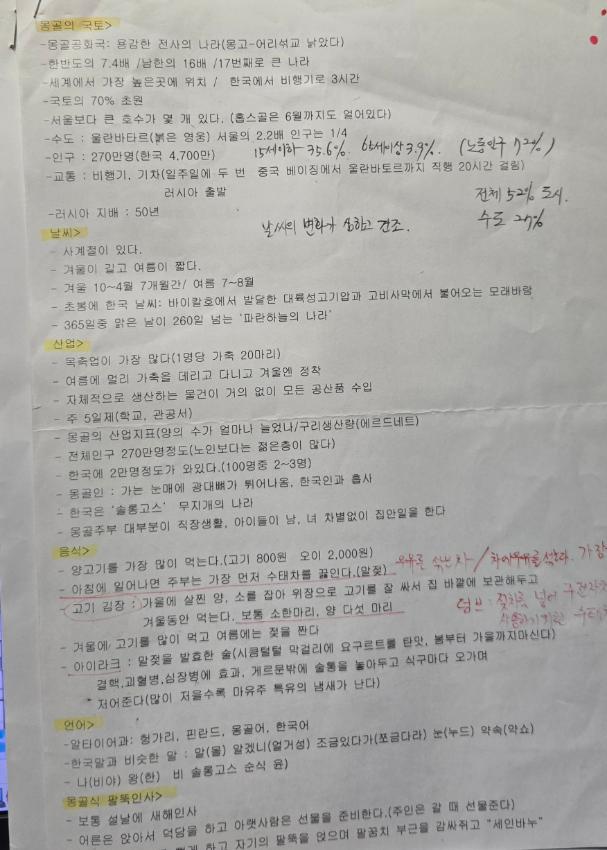 몽골의 국토>
-몽골공화국: 용감한 전사의 나라(몽고-어리섞교 낡았다)
-한반도의 7.4배 /남한의 16배 /17번째로 큰 나라
-세계에서 가장 높은곳에 위치 / 한국에서 비행기로 3시간
-국토의 70% 초원
-서울보다 큰 호수가 몇 개 있다. (홉스골은 6월까지도 얼어있다)
-수도 : 울란바타르(붉은 영웅) 서울의 2.2배 인구는 1/4
-인구 : 270만명(한국 4,700만) 15세이하 35.6% 65세이상 3.9%. (노동인구 72%)
-교통 : 비행기, 기차(일주일에 두 번 중국 베이징에서 울란바토르까지 직행 20시간 걸림)
러시아 출발
전체 52% 도시.
-러시아 지배 : 50년
날씨의 변화가 심하고 건조.
수도 27%
날씨>
- 사계절이 있다.
- 겨울이 길고 여름이 짧다.
- 겨울 10~4월 7개월간/ 여름 7~8월
- 초봄에 한국 날씨: 바이칼호에서 발달한 대륙성고기압과 고비사막에서 불어오는 모래바람
- 365일중 맑은 날이 260일 넘는 '파란하늘의 나라'
산업>
- 목축업이 가장 많다(1명당 가축 20마리)
- 여름에 멀리 가축을 데리고 다니고 겨울엔 정착
- 자체적으로 생산하는 물건이 거의 없이 모든 공산품 수입
- 주 5일제(학교, 관공서)
- 몽골의 산업지표(양의 수가 얼마나 늘었나/구리생산량(에르드네트)
- 전체인구 270만명정도(노인보다는 젊은층이 많다)
- 한국에 2만명정도가 와있다.(100명중 2~3명)
- 몽골인 : 가는 눈매에 광대뼈가 튀어나옴, 한국인과 흡사
- 한국은 '솔롱고스' 무지개의 나라
- 몽골주부 대부분이 직장생활, 아이들이 남, 녀 차별없이 집안일을 한다
음식>
- 양고기를 가장 많이 먹는다.(고기 800원 오이 2,000원)
- 아침에 일어나면 주부는 가장 먼저 수태차를 끓인다.(말젖)
-(고기 김장 : 가을에 살찐 양, 소를 잡아 위장으로 고기를 잘 싸서 집 바깥에 보관해두고
겨울동안 먹는다. 보통 소한마리, 양 다섯 마리
- 겨울에 고기를 많이 먹고 여름에는 젖을 짠다
- 아이라크 : 말젖을 발효한 술(시큼털털 막걸리에 요구르트를 탄맛, 봄부터 가을까지마신다)
결핵,괴혈병,심장병에 효과, 게르문밖에 술통을 놓아두고 식구마다 오가며
저어준다(많이 저을수록 마유주 특유의 냄새가 난다)
언어>
-알타이어과: 헝가리, 핀란드, 몽골어, 한국어
-한국말과 비슷한 말 : 말(몰) 알겠니(열거성) 조금있다가(쪼금다라) 눈(누드) 약속(악쇼)
- 나(비야) 왕(한) 비 솔롱고스 순식 윤)
몽골식 팔뚝인사>
- 보통 설날에 새해인사
- 어른은 앉아서 덕담을 하고 아랫사람은 선물을 준비한다.(주인은 갈 때 선물준다)
하고 자기의 팔뚝을 얹으며 팔꿈치 부근을 감싸쥐고 "세인바누"